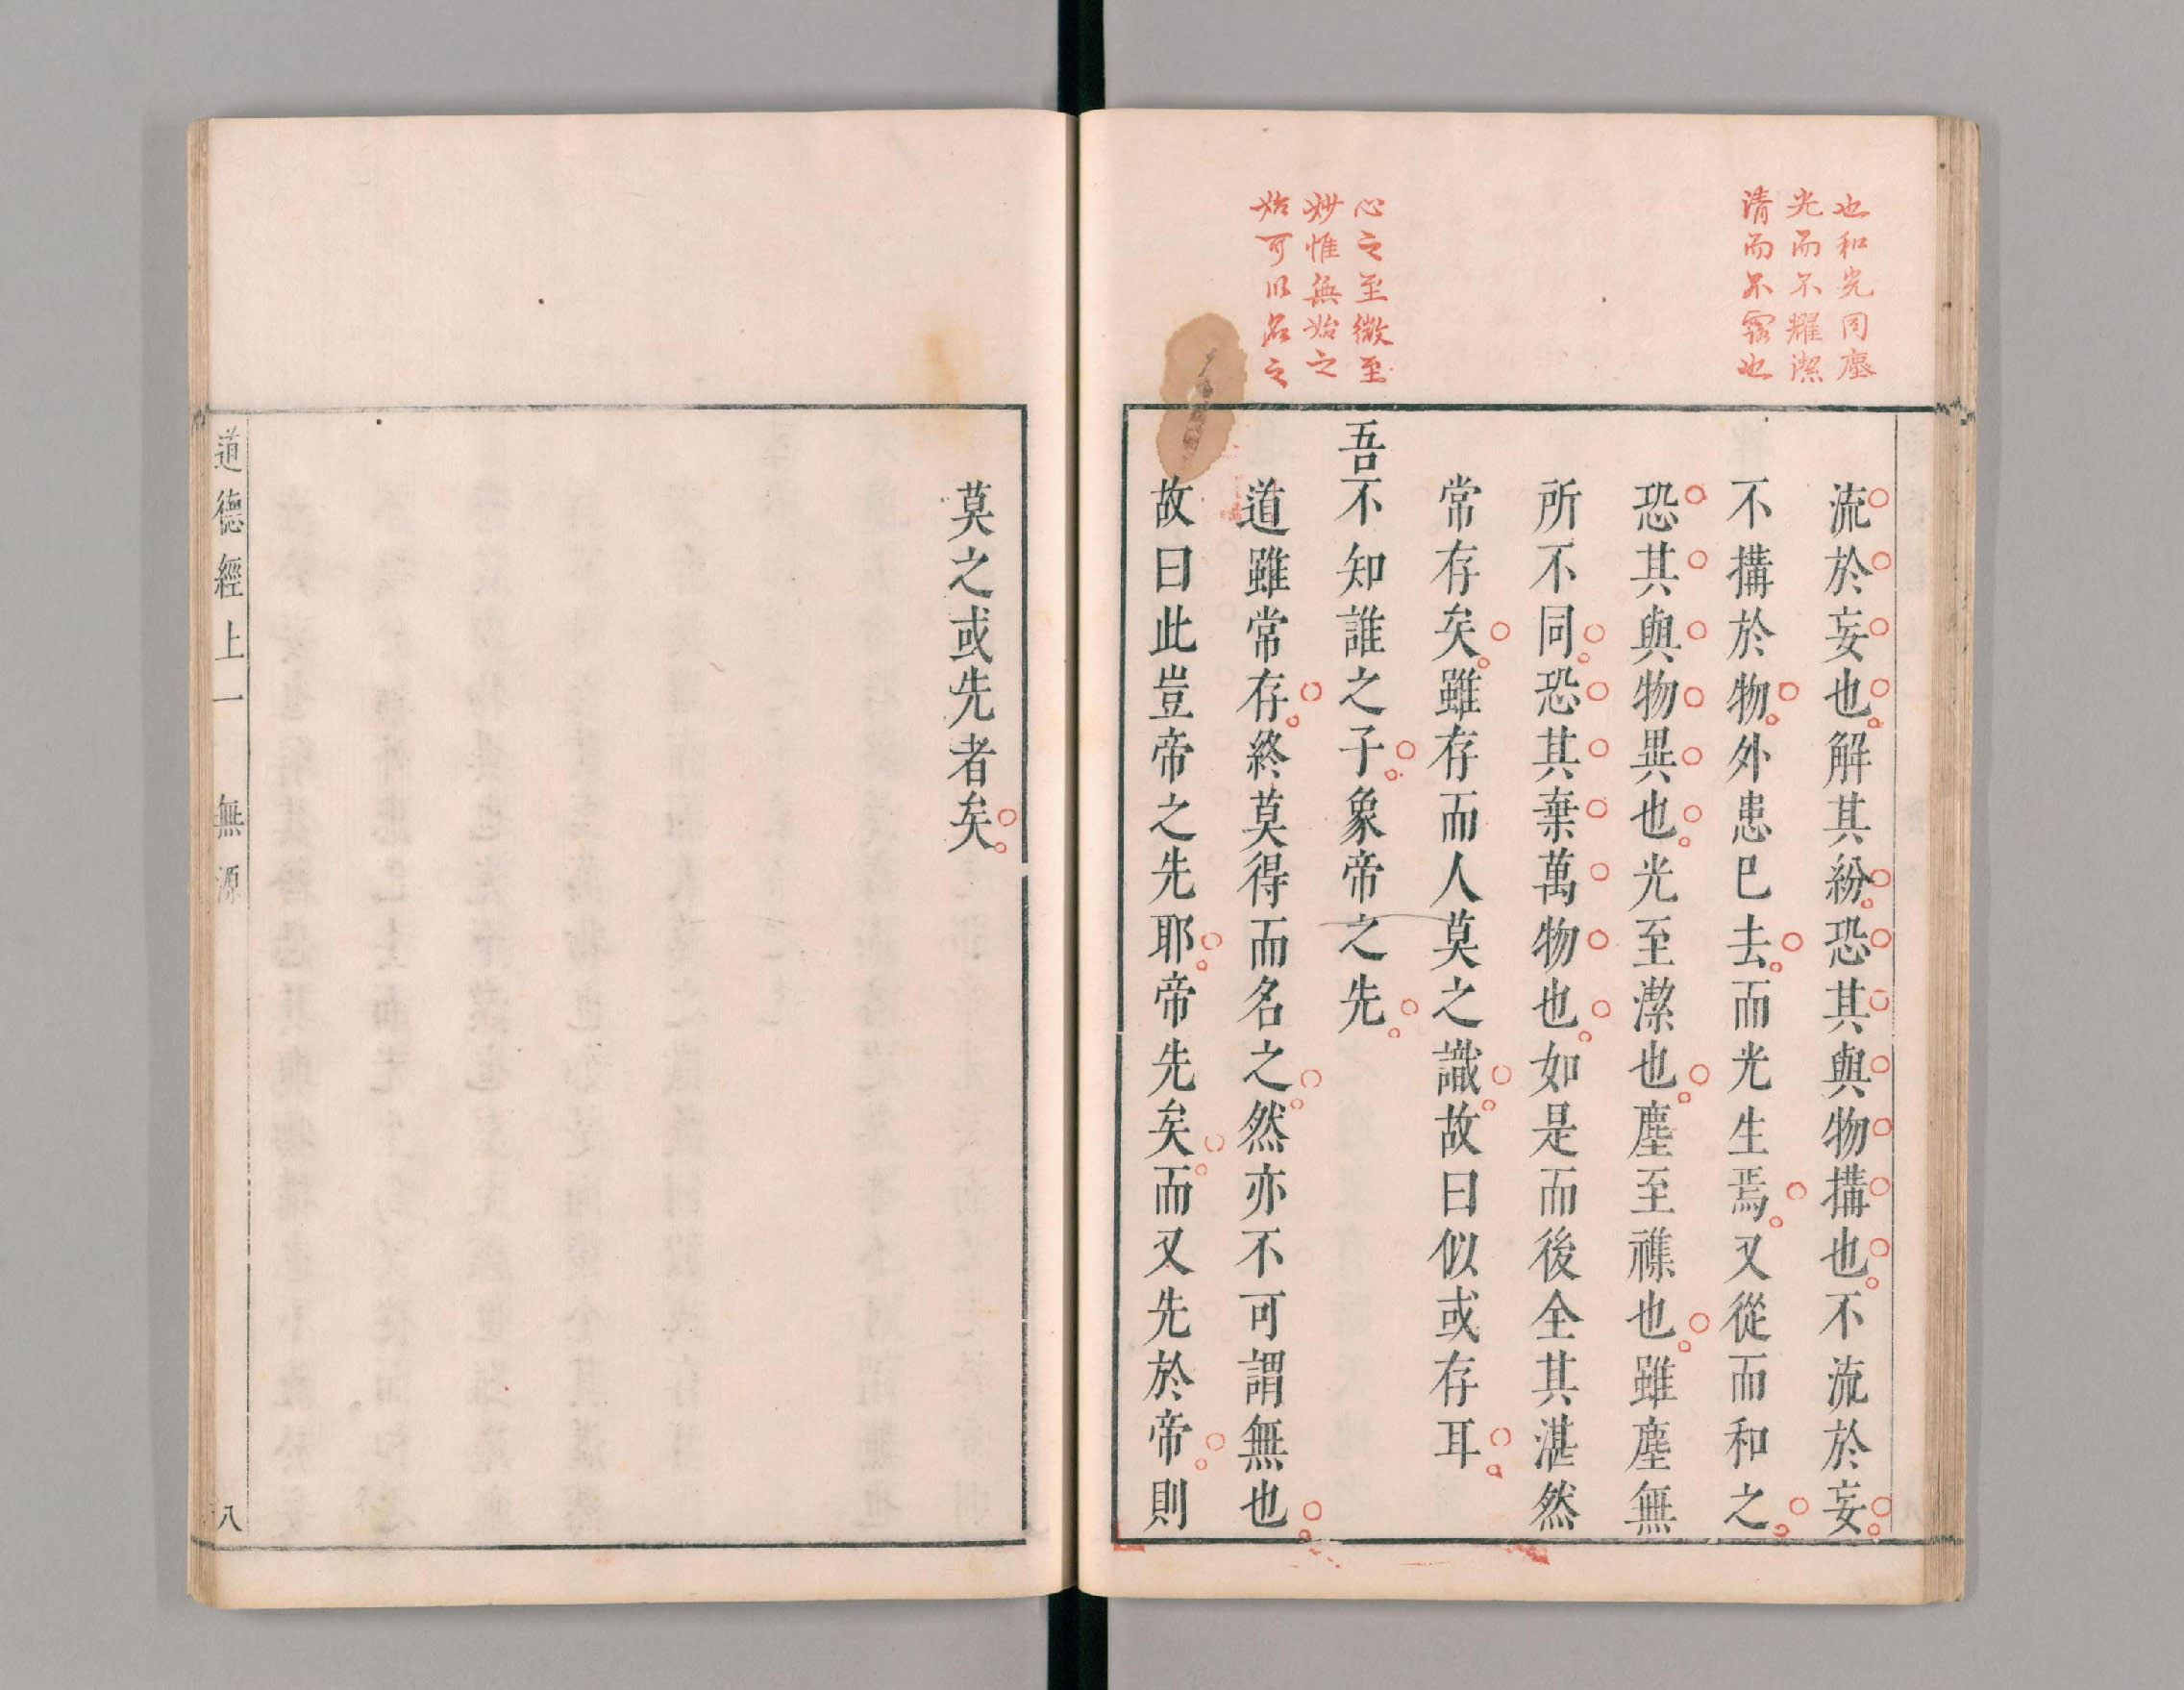 也和光同塵
光而不耀潔
清而不露也
心之至微至
妙惟無始之
始可以名之
流於妄也解其紛恐其與物搆也不流於妄
不搆於物外患已去而光生焉又從而和之
恐其與物異也光至潔也塵至襍也雖塵無
所不同恐其棄萬物也如是而後全其湛然
常存矣雖存而人莫之識故曰似或存耳
吾不知誰之子象帝之先
道雖常存終莫得而名之然亦不可謂無也
故曰此豈帝之先耶帝先矣而又先於帝則
莫之或先者矣
道德經上一 無源 八